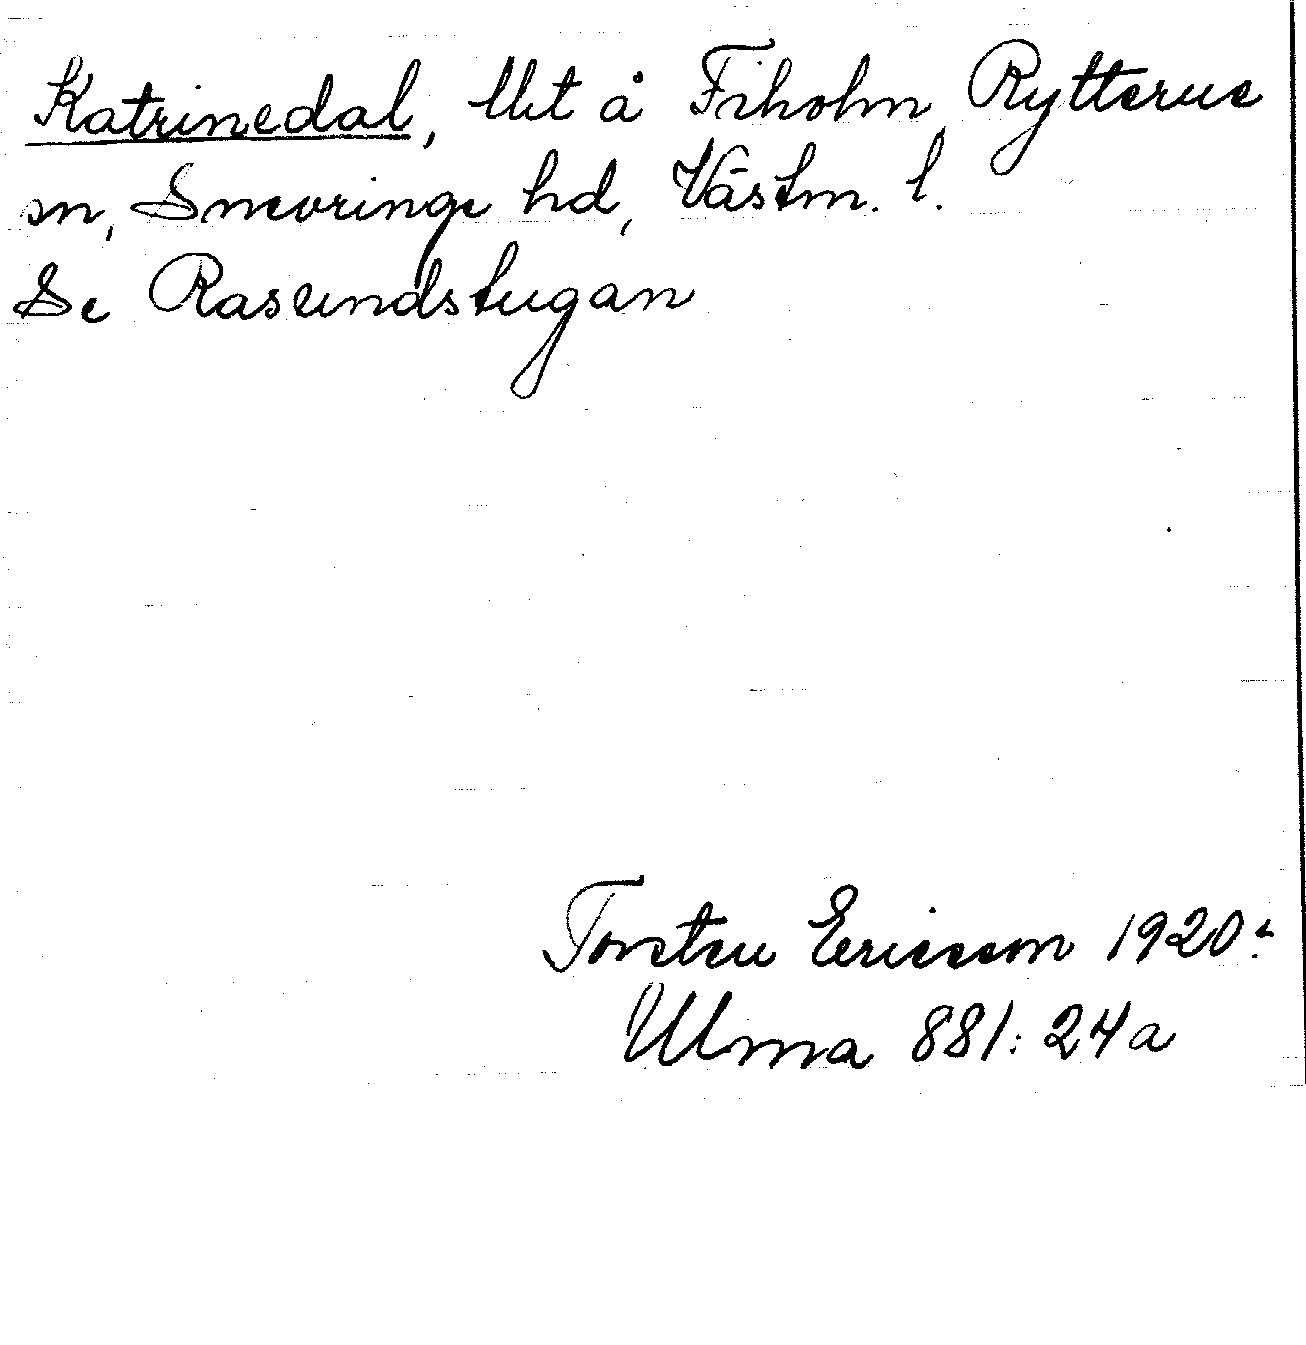 Katrinedal, lht å Fiholm, Rytterne
sn, Snevringe hd, Västm. l.
Se Rasundstugan
Torsten Ericsson 1920.
Ulma 881:24a